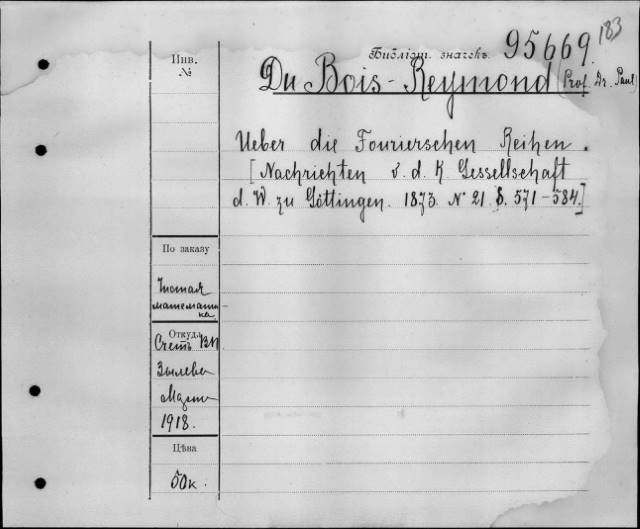 183
Библіот. значекъ 95669.
Инв.
№
Du Bois-Reymond (Prof. Dr. Paul)
Ueber die Fourierschen Reihen.
[Nachrichten v. d. K. Gessellschaft
d. W. zu Göttingen. 1873 N 21 S. 571-584.]
По заказу
Чистая
математи-
ка
Откуда
Счетъ
1918.
Цѣна
50к.